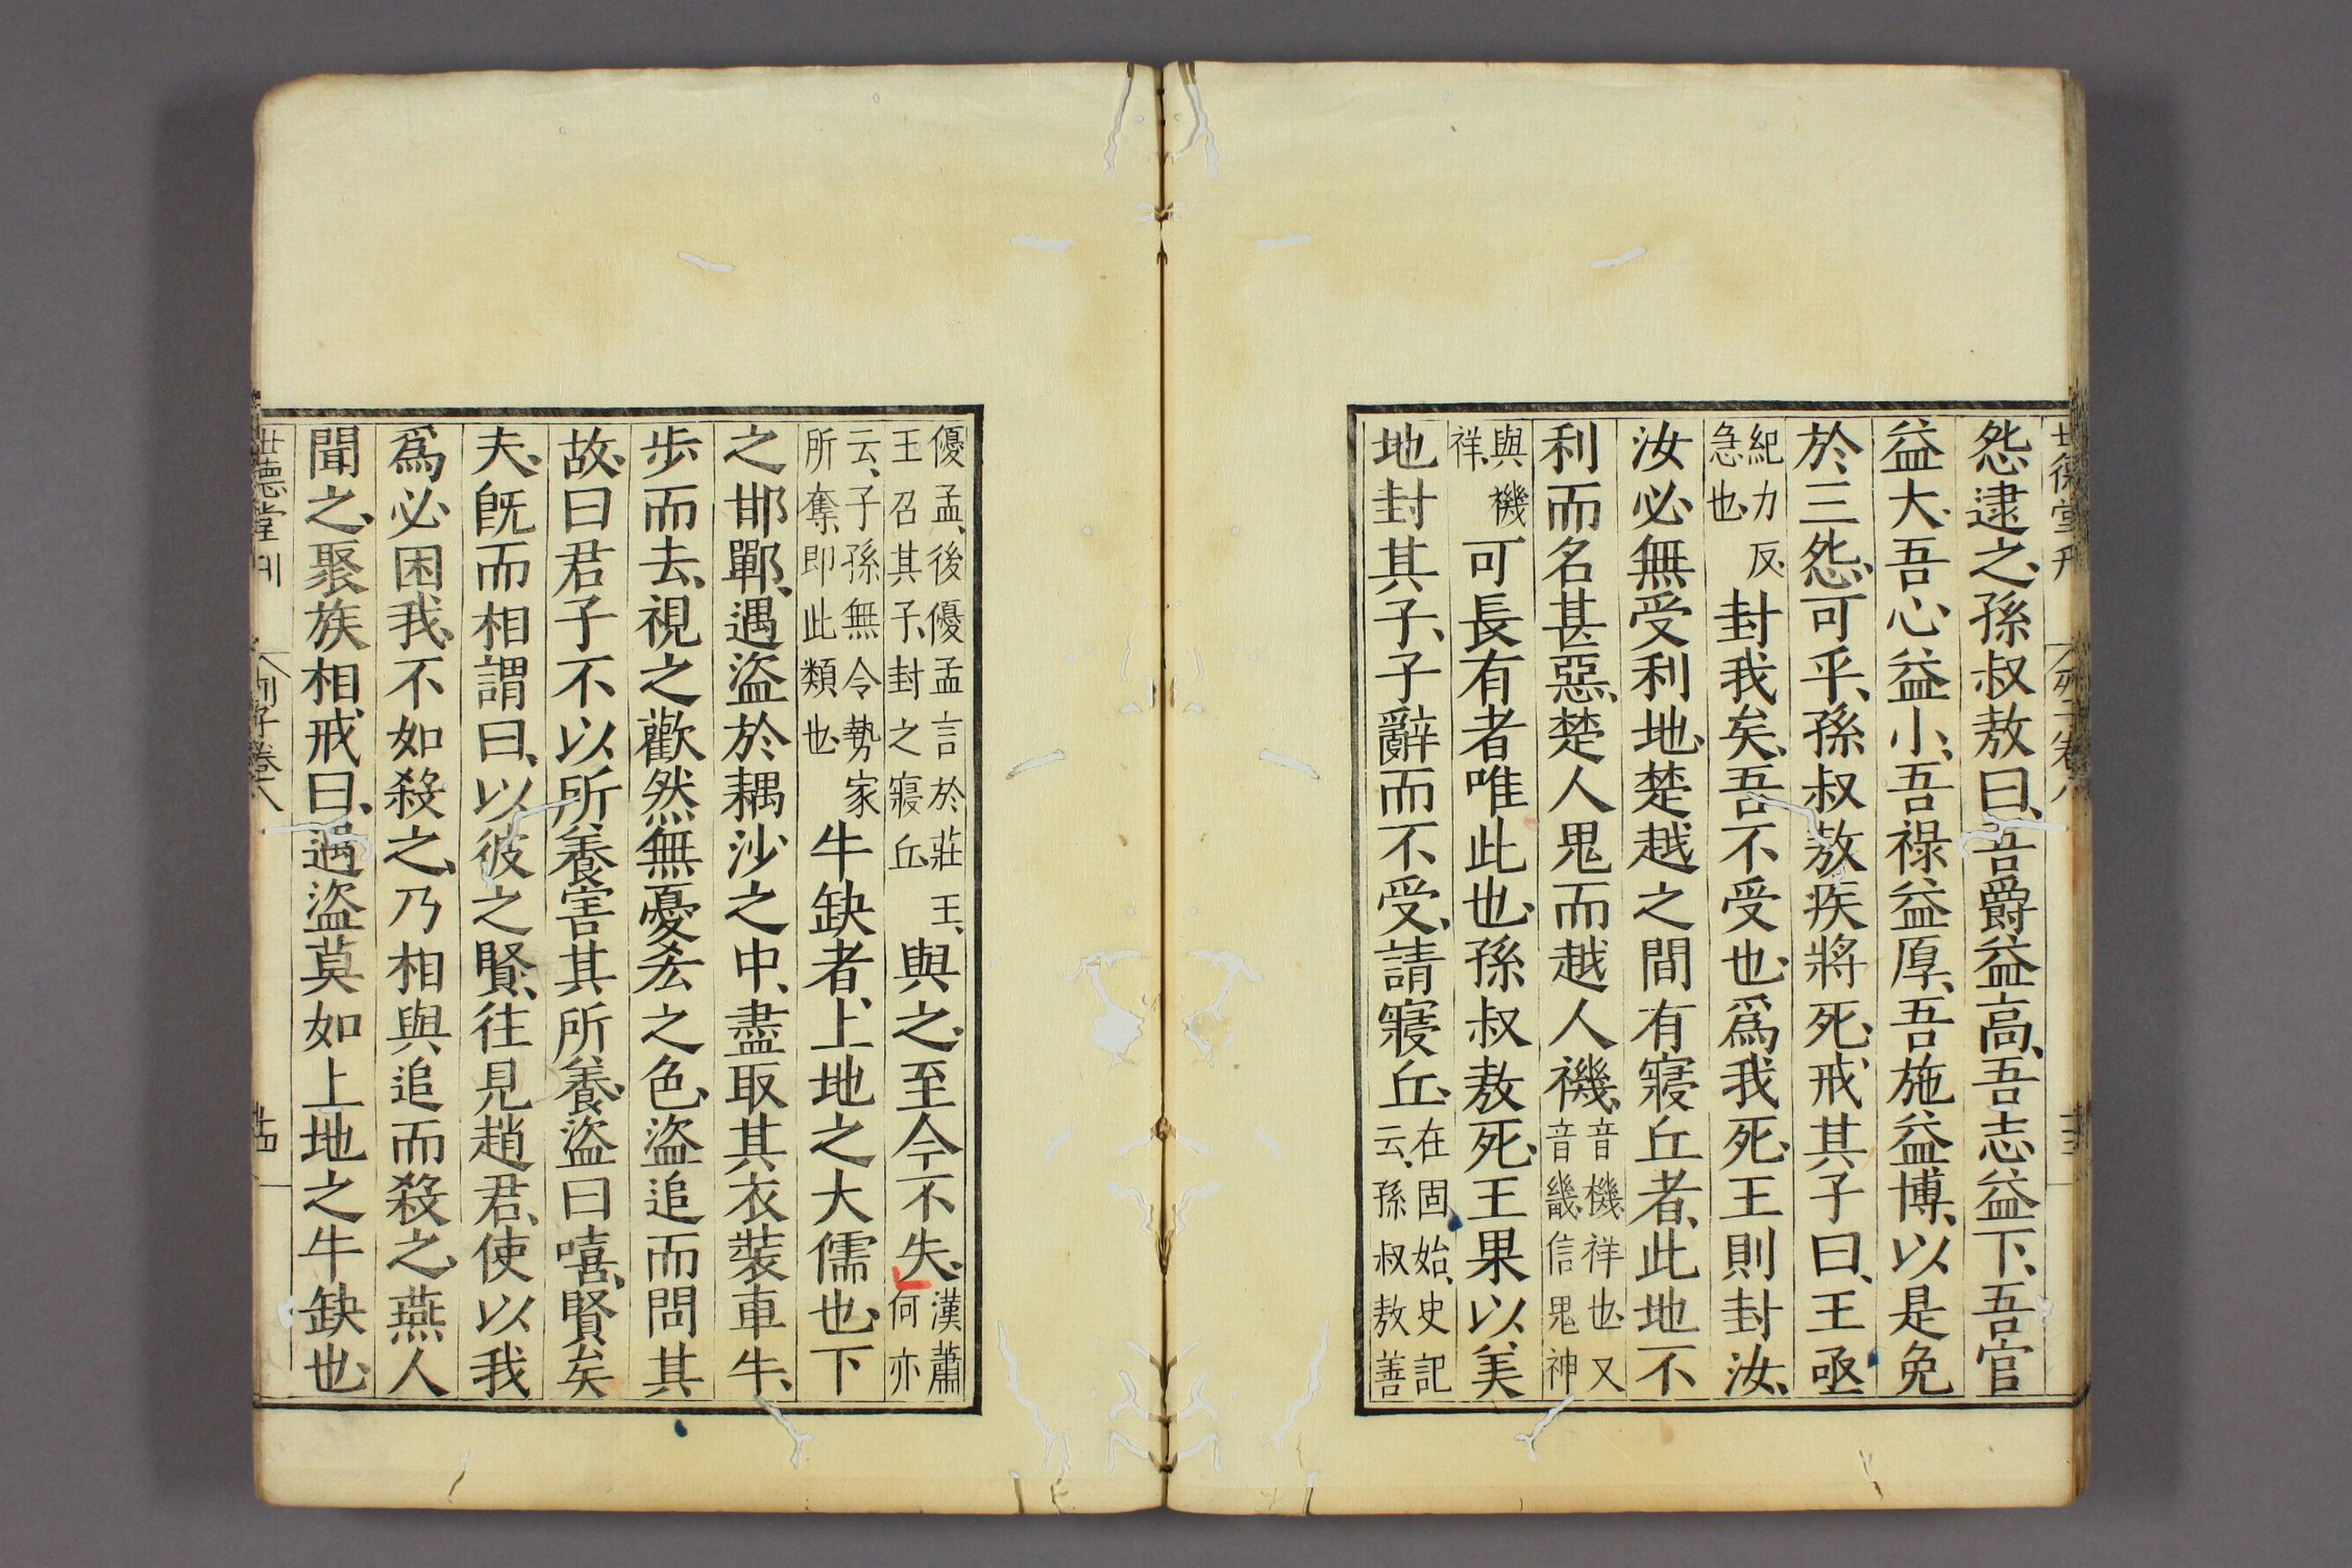 世德堂刊 列子卷八
怨逮之、孫叔敖曰、吾爵益高、吾志益下、吾官
益大、吾心益小、吾祿益厚、吾施益博、以是免
於三怨、可乎、孫叔敖疾將死、戒其子曰、王亟
紀力反、急也、封我矣、吾不受也、爲我死、王則封汝、
汝必無受利地、楚越之間有寢丘者、此地不
利而名甚惡、楚人鬼而越人禨、音機祥也、又音畿、信鬼神
與禨祥、可長有者唯此也、孫叔敖死、王果以美
地封其子、子辭而不受、請寢丘、在固始、史記云、孫叔敖善
優孟、後優孟言於莊王、王召其子、封之寢丘、與之、至今不失、漢蕭何亦
云、子孫無令勢家所奪、即此類也、牛缺者、上地之大儒也、下
之邯鄲、遇盜於耦沙之中、盡取其衣裝車牛、
步而去、視之歡然無憂㕁之色、盜追而問其
故、曰君子不以所養害其所養、盜曰嘻、賢矣
夫、旣而相謂曰、以彼之賢、往見趙君、使以我
爲必困我、不如殺之、乃相與追而殺之、燕人
聞之、聚族相戒曰、遇盜莫如上地之牛缺也、
世德堂刊 列子卷八